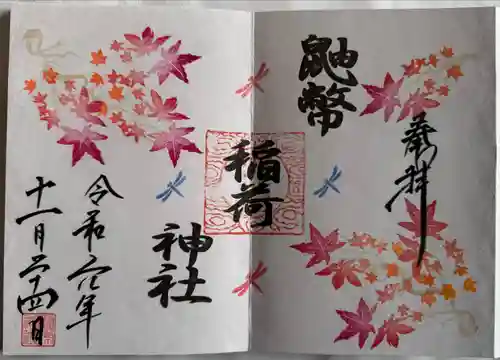 奉拝
鼬幣
稲荷
神社
令和六年
十一月二十四日